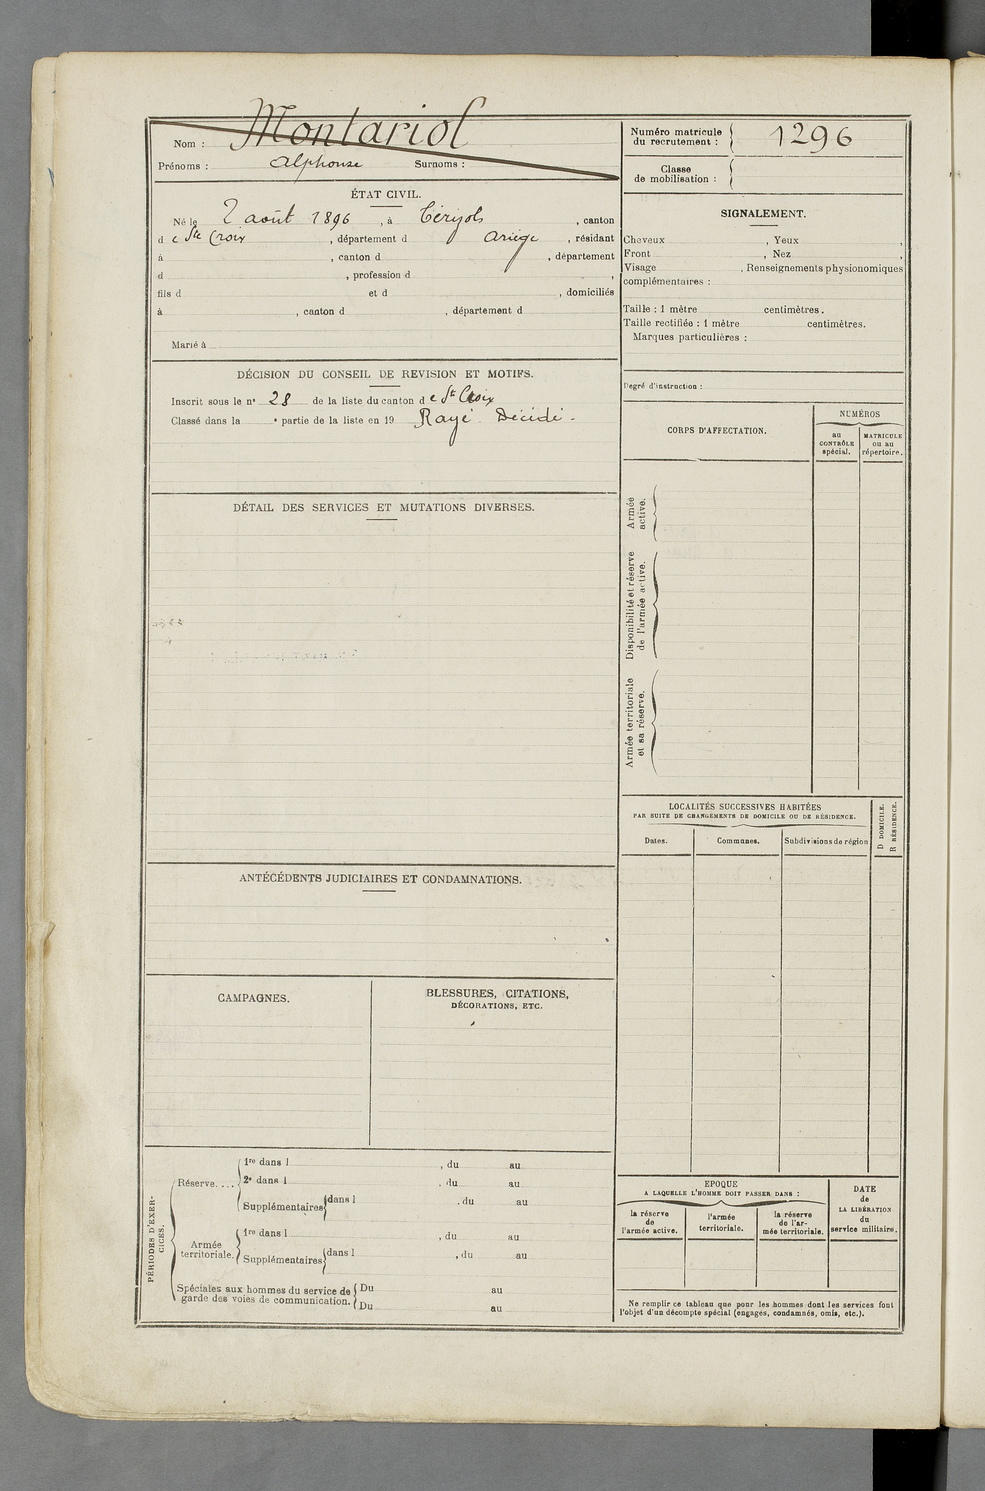 Nom : Montariol
Prénoms : Alphonse Surnoms :
Numéro matricule du recrutement : 1296
Classe de mobilisation :
ÉTAT CIVIL.
Né le 2 août 1896, à Cérizols, canton
de Ste Croix, département d Ariège, résidant
à , canton d , département
d , profession d ,
fils d et d , domiciliés
à , canton d , département d
Marié à
SIGNALEMENT.
Cheveux , Yeux ,
Front , Nez ,
Visage , Renseignements physionomiques
complémentaires :
Taille : 1 mètre centimètres.
Taille rectifiée : 1 mètre centimètres.
Marques particulières :
Degré d'instruction :
DÉCISION DU CONSEIL DE REVISION ET MOTIFS.
Inscrit sous le n° 28 de la liste du canton de Ste Croix
Classé dans la e partie de la liste en 19 Rayé Décédé.
CORPS D'AFFECTATION.
NUMÉROS
au CONTRÔLE spécial.
MATRICULE ou au répertoire.
Armée active.
Disponibilité et réserve de l'armée active.
Armée territoriale et sa réserve.
DÉTAIL DES SERVICES ET MUTATIONS DIVERSES.
LOCALITÉS SUCCESSIVES HABITÉES
PAR SUITE DE CHANGEMENTS DE DOMICILE OU DE RÉSIDENCE.
Dates. Communes. Subdivisions de région
D DOMICILE.
R RÉSIDENCE.
ANTÉCÉDENTS JUDICIAIRES ET CONDAMNATIONS.
CAMPAGNES.
BLESSURES, CITATIONS,
DÉCORATIONS, ETC.
PÉRIODES D'EXERCICES.
Réserve....
1re dans l , du au
2e dans l , du au
Supplémentaires dans l , du au
Armée territoriale.
1re dans l , du au
Supplémentaires dans l , du au
Spéciales aux hommes du service de garde des voies de communication.
Du au
Du au
EPOQUE
A LAQUELLE L'HOMME DOIT PASSER DANS :
la réserve de l'armée active.
l'armée territoriale.
la réserve de l'armée territoriale.
DATE de LA LIBÉRATION du service militaire.
Ne remplir ce tableau que pour les hommes dont les services font
l'objet d'un décompte spécial (engagés, condamnés, omis, etc.).